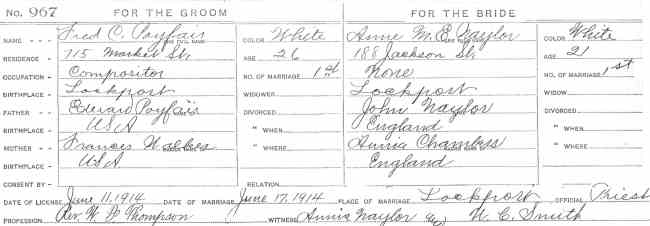 No. 967 FOR THE GROOM FOR THE BRIDE
NAME Fred C. Payfair COLOR White Anne M. E. Naylor COLOR White
RESIDENCE 715 Market St. AGE 26 188 Jackson St. AGE 21
OCCUPATION Compositor NO. OF MARRIAGE 1st None NO. OF MARRIAGE 1st
BIRTHPLACE Lockport WIDOWER Lockport WIDOW
FATHER Edward Payfair DIVORCED John Naylor DIVORCED
BIRTHPLACE USA " WHEN England " WHEN
MOTHER Frances " WHEN Annie Chambers " WHEN
BIRTHPLACE USA England
CONSENT BY RELATION
DATE OF LICENSE June 11, 1914 DATE OF MARRIAGE June 17, 1914 PLACE OF MARRIAGE Lockport OFFICIAL Priest
PROFESSION Rev. W. F. Thompson WITNESS Annie Naylor and N. C. Smith